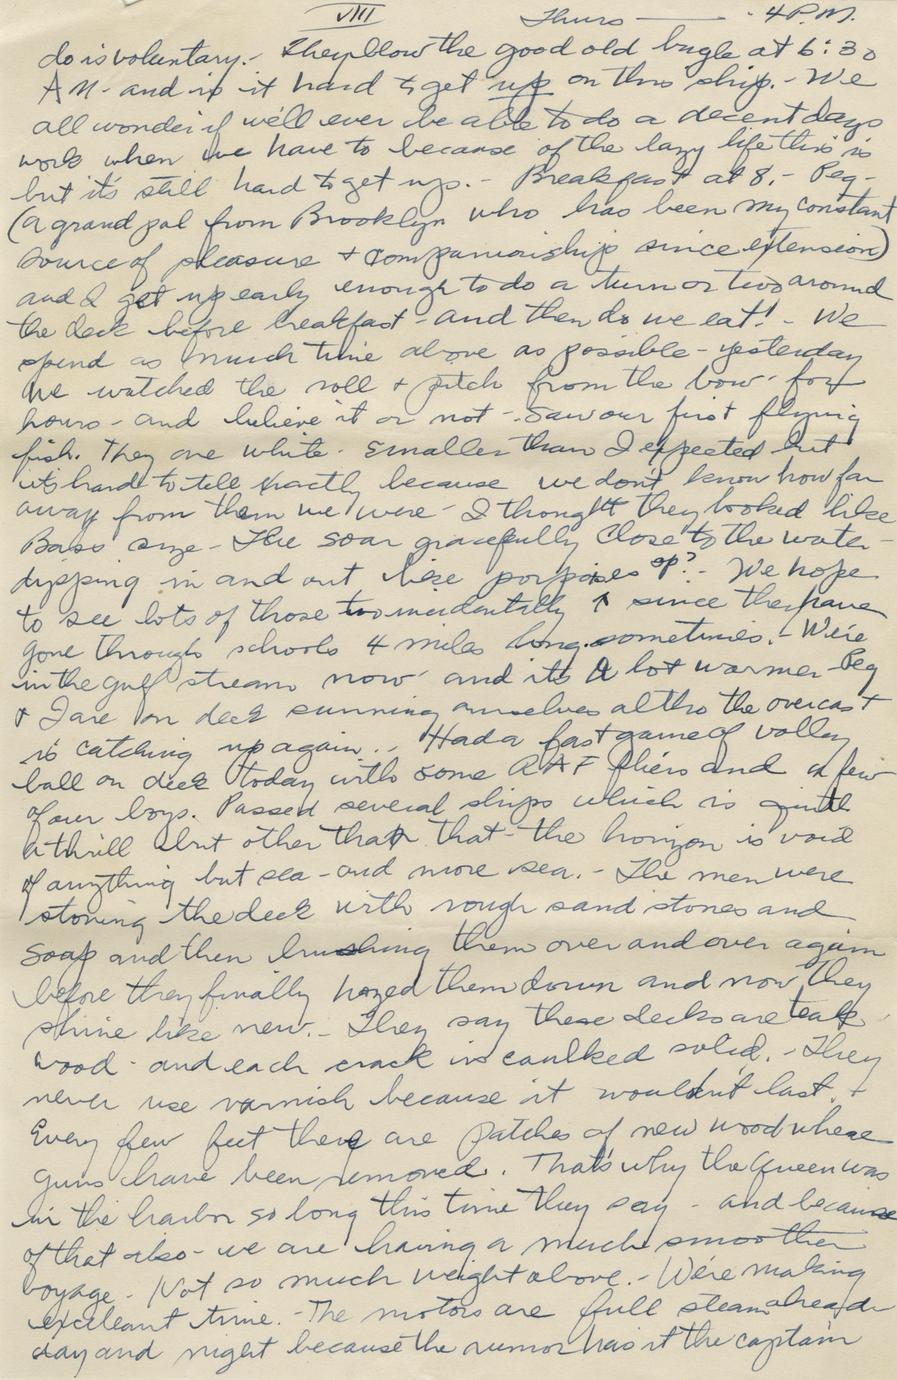 VIII Thurs —— - 4 P.M.
do is voluntary.- They blow the good old bugle at 6:30
A M - and is it hard to get up on this ship.- We
all wonder if we'll ever be able to do a decent days
work when we have to because of the lazy life this is
but it's still hard to get up.- Breakfast at 8.- Peg-
(a grand pal from Brooklyn who has been my constant
source of pleasure + companionship since extension)
and I get up early enough to do a turn or two around
the deck before breakfast - and then do we eat! - We
spend as much time above as possible - yesterday
we watched the roll + pitch from the bow - for
hours - and believe it or not - saw our first flying
fish. They are white - smaller than I expected but
it's hard to tell exactly because we don't know how far
away from them we were - I thought they looked like
Bass size - The soar gracefully close to the water -
dipping in and out like porpoises sp? - We hope
to see lots of those too incidentally ↑ since they have
gone through schools 4 miles long sometimes. - We're
in the gulf stream now - and its a lot warmer - Peg
+ I are on deck sunning ourselves altho the overcast
is catching up again.. Had a fast game of volley
ball on deck today with some RAF fliers and a few
of our boys. Passed several ships which is quite
a thrill but other than that - the horizon is void
of anything but sea - and more sea. - The men were
stoning the deck with rough sand stones and
soap and then brushing them over and over again
before they finally hozed them down and now they
shine like new. - They say these decks are teak
wood - and each crack is caulked solid. - They
never use varnish because it wouldn't last. +
Every few feet there are patches of new wood where
guns have been removed. That's why the Queen was
in the harbor so long this time they say - and because
of that also - we are having a much smoother
voyage - Not so much weight above. - We're making
excellant time. - The motors are full steam ahead
day and night because the rumor has it the captain